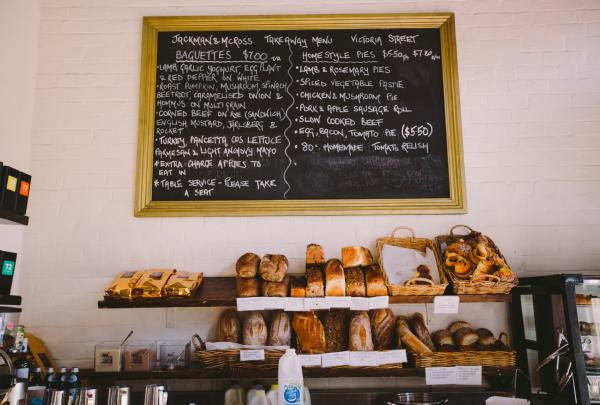 JACKMAN & MCROSS TAKEAWAY MENU VICTORIA STREET
BAGUETTES $7.00 T/A
• LAMB GARLIC YOGHURT EGGPLANT
& RED PEPPER ON WHITE
• ROAST PUMPKIN, MUSHROOM, SPINACH
BEETROT, CARAMELISED ONION &
HOMMUS ON MULTIGRAIN
• CORNED BEEF ON RYE (SANDWICH)
ENGLISH MUSTARD, JARLSBERG &
ROCKET
• TURKEY, PANCETTA, COS LETTUCE
PARMESAN & LIGHT ANCHOVY MAYO
* EXTRA CHARGE APPLIES TO
EAT IN
* TABLE SERVICE - PLEASE TAKE
A SEAT
HOMESTYLE PIES $5.50 T/A $7.80
• LAMB & ROSEMARY PIES
• SPICED VEGETABLE PASTIE
• CHICKEN & MUSHROOM PIE
• PORK & APPLE SAUSAGE ROLL
• SLOW COOKED BEEF
• EGG, BACON, TOMATO PIE ($5.50)
• 80c HOMEMADE TOMATO RELISH
T2
T2